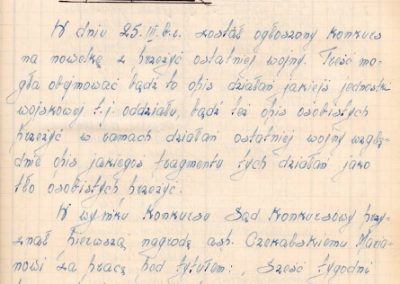 W dniu 25.III.b.r. został ogłoszony konkurs
na nowelkę z przeżyć ostatniej wojny. Treść mo-
gła obejmować bądź to opis działań jakiejś jednostki
wojskowej t.j. oddziału, bądź też opis osobistych
przeżyć w ramach działań ostatniej wojny wzglę-
dnie opis jakiegoś fragmentu tych działań jako
tło osobistych przeżyć.
W wyniku konkursu Sąd Konkursowy przy-
znał pierwszą nagrodę Czekalskiemu Maria-
nowi za pracę pod tytułem: "Sześć tygodni